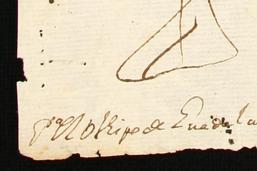 el obispo de Guadala